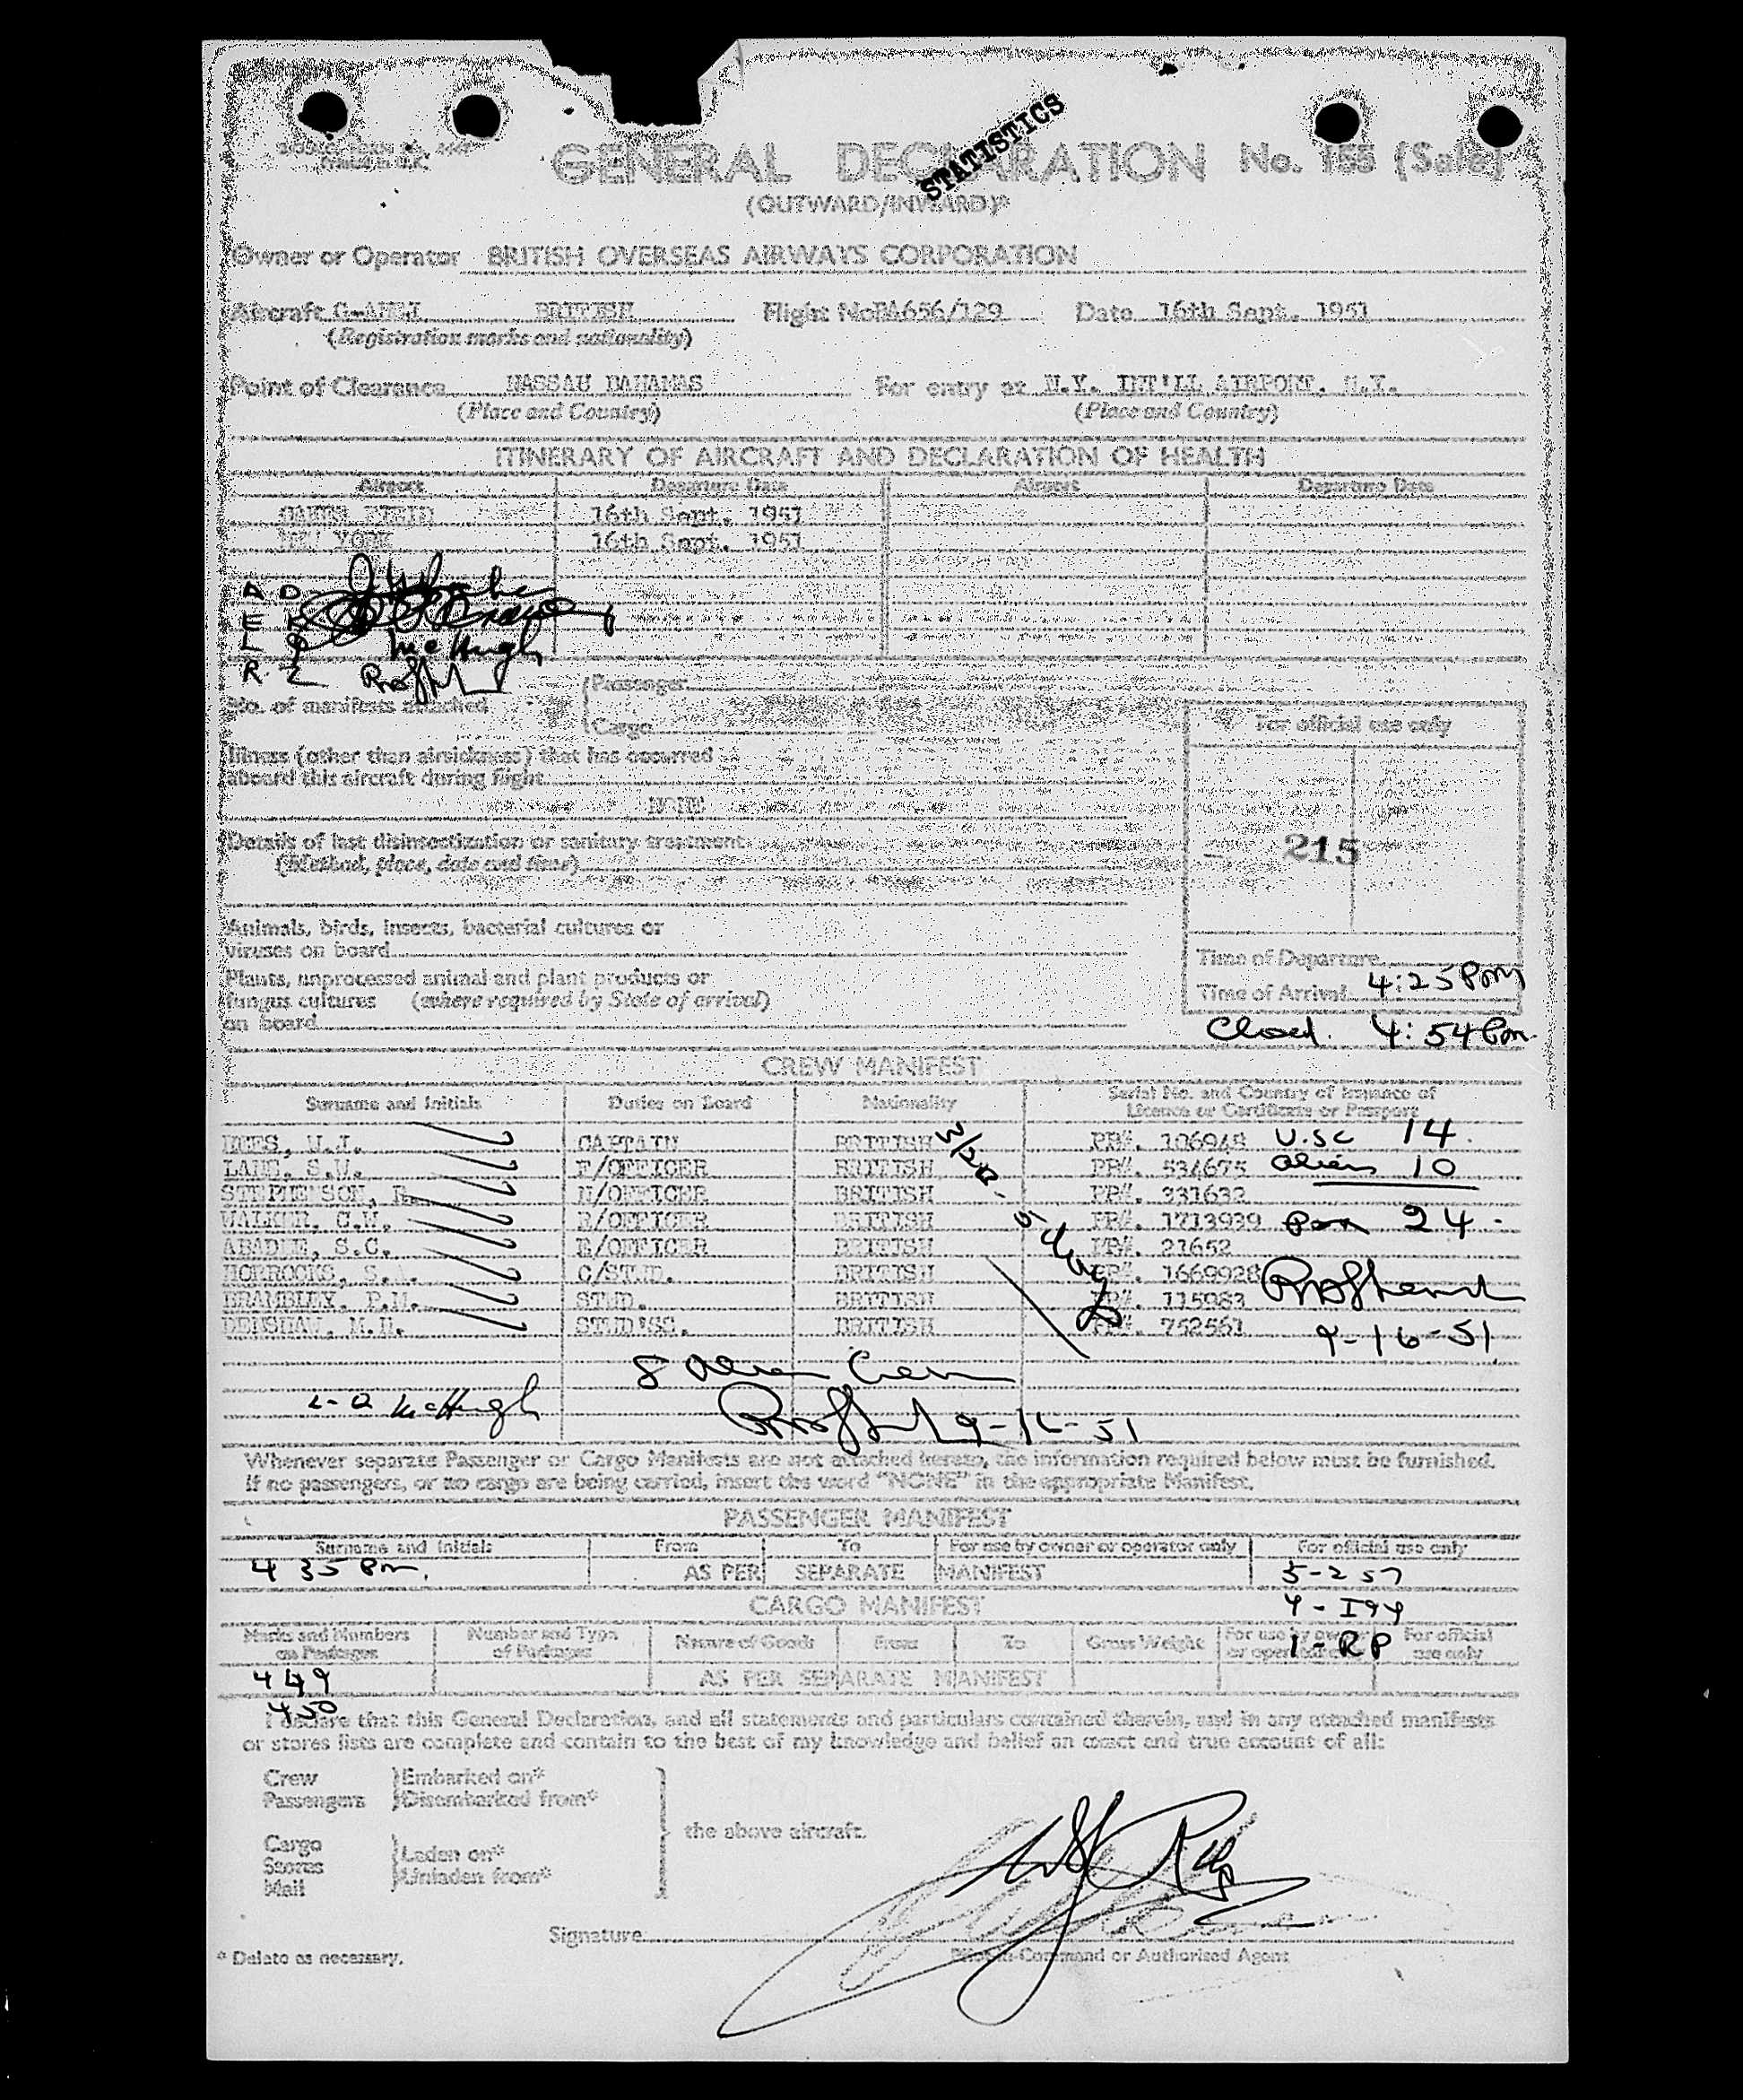 STATISTICS
GENERAL DECLARATION No. 155 (Sale)
(OUTWARD/INWARD)*
Owner or Operator BRITISH OVERSEAS AIRWAYS CORPORATION
Aircraft BRITISH Flight No BA656/129 Date 16th Sept. 1951
(Registration marks and nationality)
Point of Clearance NASSAU BAHAMAS For entry at N.Y. INT'LL AIRPORT, N.Y.
(Place and Country) (Place and Country)
ITINERARY OF AIRCRAFT AND DECLARATION OF HEALTH
Airport Departure Date Airport Departure Date
OAKES FIELD 16th Sept. 1951
NEW YORK 16th Sept. 1951
A D
E
L McHugh
R
No. of manifests attached
Passenger
Cargo
For official use only
Illness (other than airsickness) that has occurred
aboard this aircraft during flight
NONE
Details of last disinsectization or sanitary treatment
(Method, place, date and time)
215
Animals, birds, insects, bacterial cultures or
viruses on board
Plants, unprocessed animal and plant products or
fungus cultures (where required by State of arrival)
on board
Time of Departure
Time of Arrival 4:25 Pm
Closed. 4:54 Pm.
CREW MANIFEST
Surname and Initials Duties on Board Nationality Serial No. and Country of Issuance of Licence or Certificate or Passport
REES, W.J. CAPTAIN BRITISH PP#. 106948 U.SC 14
LANE, S.W. F/OFFICER BRITISH PP#. 534675 Aliens 10
STEPHENSON, R. N/OFFICER BRITISH PP#. 331632
WALKER, G.W. R/OFFICER BRITISH PP#. 1713939 24
ABADEE, S.C. E/OFFICER BRITISH PP#. 21652
HORROCKS, S. C/STWD. BRITISH PP#. 1669928
BRAMBLEY, P.M. STWD. BRITISH PP#. 115983
DENSHAW, M.H. STWD'SS. BRITISH PP#. 752561 9-16-51
8 Alien Crew
L-Q McHugh
9-16-51
Whenever separate Passenger or Cargo Manifests are not attached hereto, the information required below must be furnished.
If no passengers, or no cargo are being carried, insert the word "NONE" in the appropriate Manifest.
PASSENGER MANIFEST
Surname and Initials From To For use by owner or operator only For official use only
4 35 Pm. AS PER SEPARATE MANIFEST 5-257
CARGO MANIFEST 4-I94
Marks and Numbers on Packages Number and Type of Packages Nature of Goods From To Gross Weight For use by owner or operator only For official use only
1-RP
449 AS PER SEPARATE MANIFEST
450
I declare that this General Declaration, and all statements and particulars contained therein, and in any attached manifests
or stores lists are complete and contain to the best of my knowledge and belief an exact and true account of all:
Crew
Passengers
Embarked on*
Disembarked from*
the above aircraft.
Cargo
Stores
Mail
Laden on*
Unladen from*
Signature
* Delete as necessary.
Pilot-in-Command or Authorised Agent